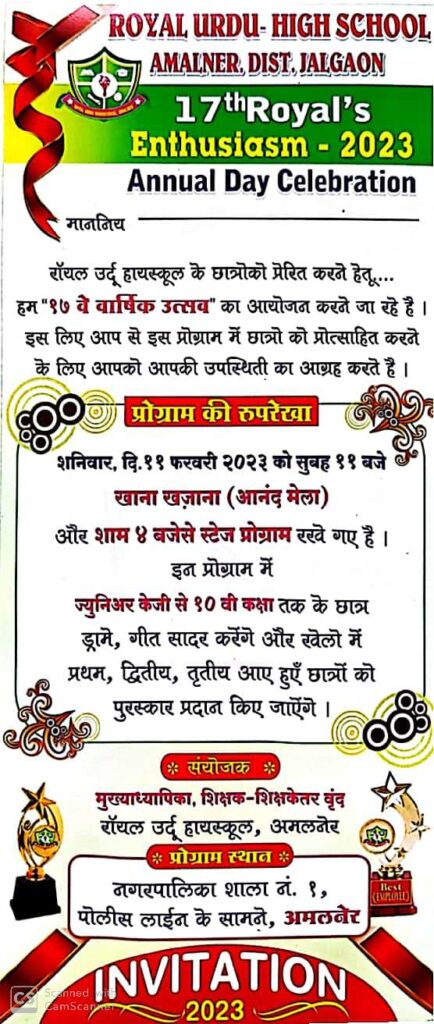 ROYAL URDU- HIGH SCHOOL
AMALNER, DIST. JALGAON
17thRoyal's
Enthusiasm - 2023
Annual Day Celebration
माननिय
रॉयल उर्दू हायस्कूल के छात्रोको प्रेरित करने हेतू....
हम "१७ वे वार्षिक उत्सव" का आयोजन करने जा रहे है ।
इस लिए आप से इस प्रोग्राम में छात्रो को प्रोत्साहित करने
के लिए आपको आपकी उपस्थिती का आग्रह करते है ।
प्रोग्राम की रुपरेखा
शनिवार, दि.११ फरवरी २०२३ को सुबह ११ बजे
खाना खज़ाना (आनंद मेला)
और शाम ४ बजेसे स्टेज प्रोग्राम रखे गए है ।
इन प्रोग्राम में
ज्युनिअर केजी से १० वी कक्षा तक के छात्र
ड्रामे, गीत सादर करेंगे और खेलो में
प्रथम, द्वितीय, तृतीय आए हुएँ छात्रों को
पुरस्कार प्रदान किए जाऐंगे ।
संयोजक
मुख्याध्यापिका, शिक्षक-शिक्षकेतर वृंद
रॉयल उर्दू हायस्कूल, अमलनेर
प्रोग्राम स्थान
नगरपालिका शाला नं. १,
पोलीस लाईन के सामने, अमलनेर
Best
(EMPLOYEE)
INVITATION
2023
CS Scanned with
CamScanner